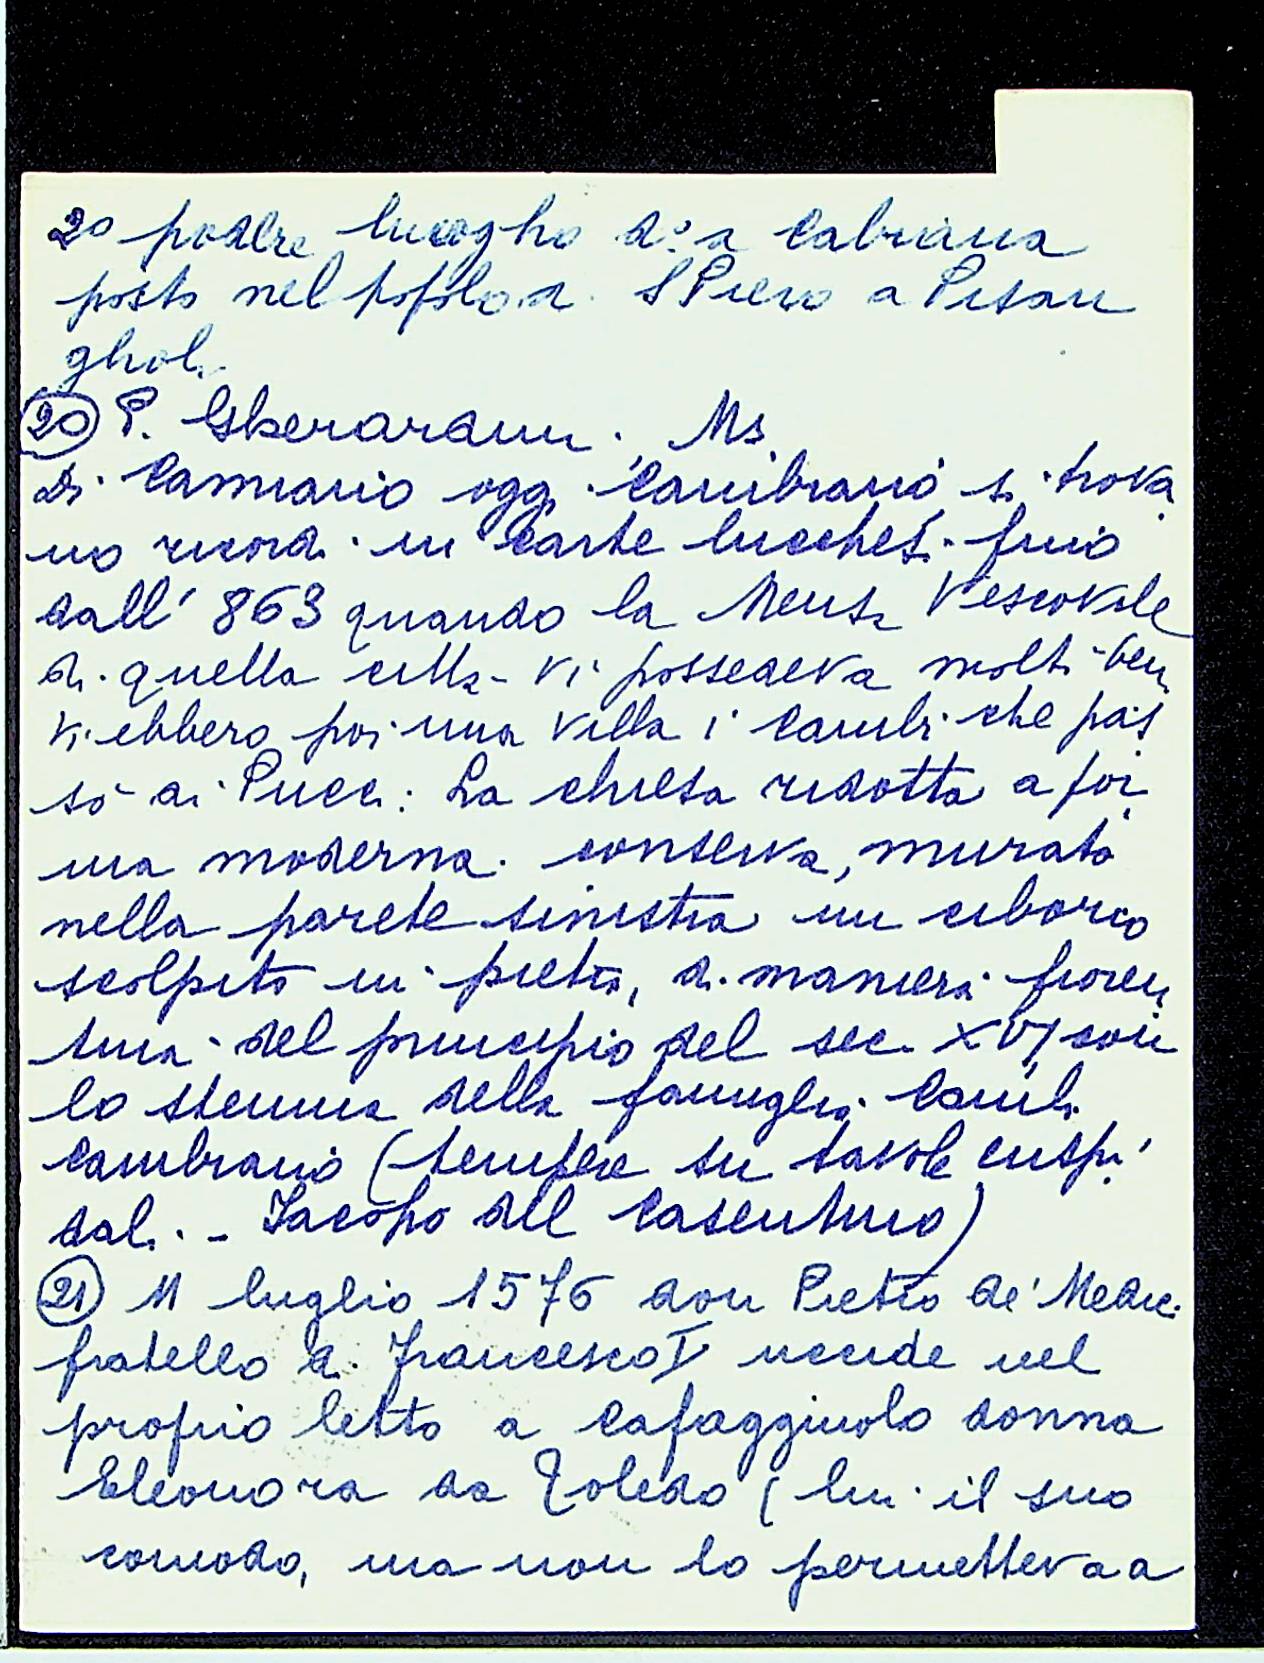 20 podere luogho d.o a Cabriana
posto nel popolo d. S Piero a Pesan
ghol.
(20) P. Gherarani. Ms
Di Camriano oggi 'Cambiano' si trova
no ricordi in carte lucchesi fino
dall' 863 quando la Mensa Vescovile
di quella città vi possedeva molti beni
vi ebbero poi una villa i Cambi che pas
sò ai Pucci: La chiesa ridotta a for
ma moderna. conserva, murato
nella parete sinistra un ciborio
scolpito in pietra, di maniera fioren
tina del principio del sec. XVI con
lo stemma della famiglia Cambi.
Cambiano (tempere su tavole cuspi
dali - Jacopo del Casentino)
(21) 11 luglio 1576 don Pietro de' Medici
fratello di Francesco I uccide nel
proprio letto a Cafaggiuolo donna
Eleonora da Toledo (lui il suo
comodo, ma non lo permetteva a